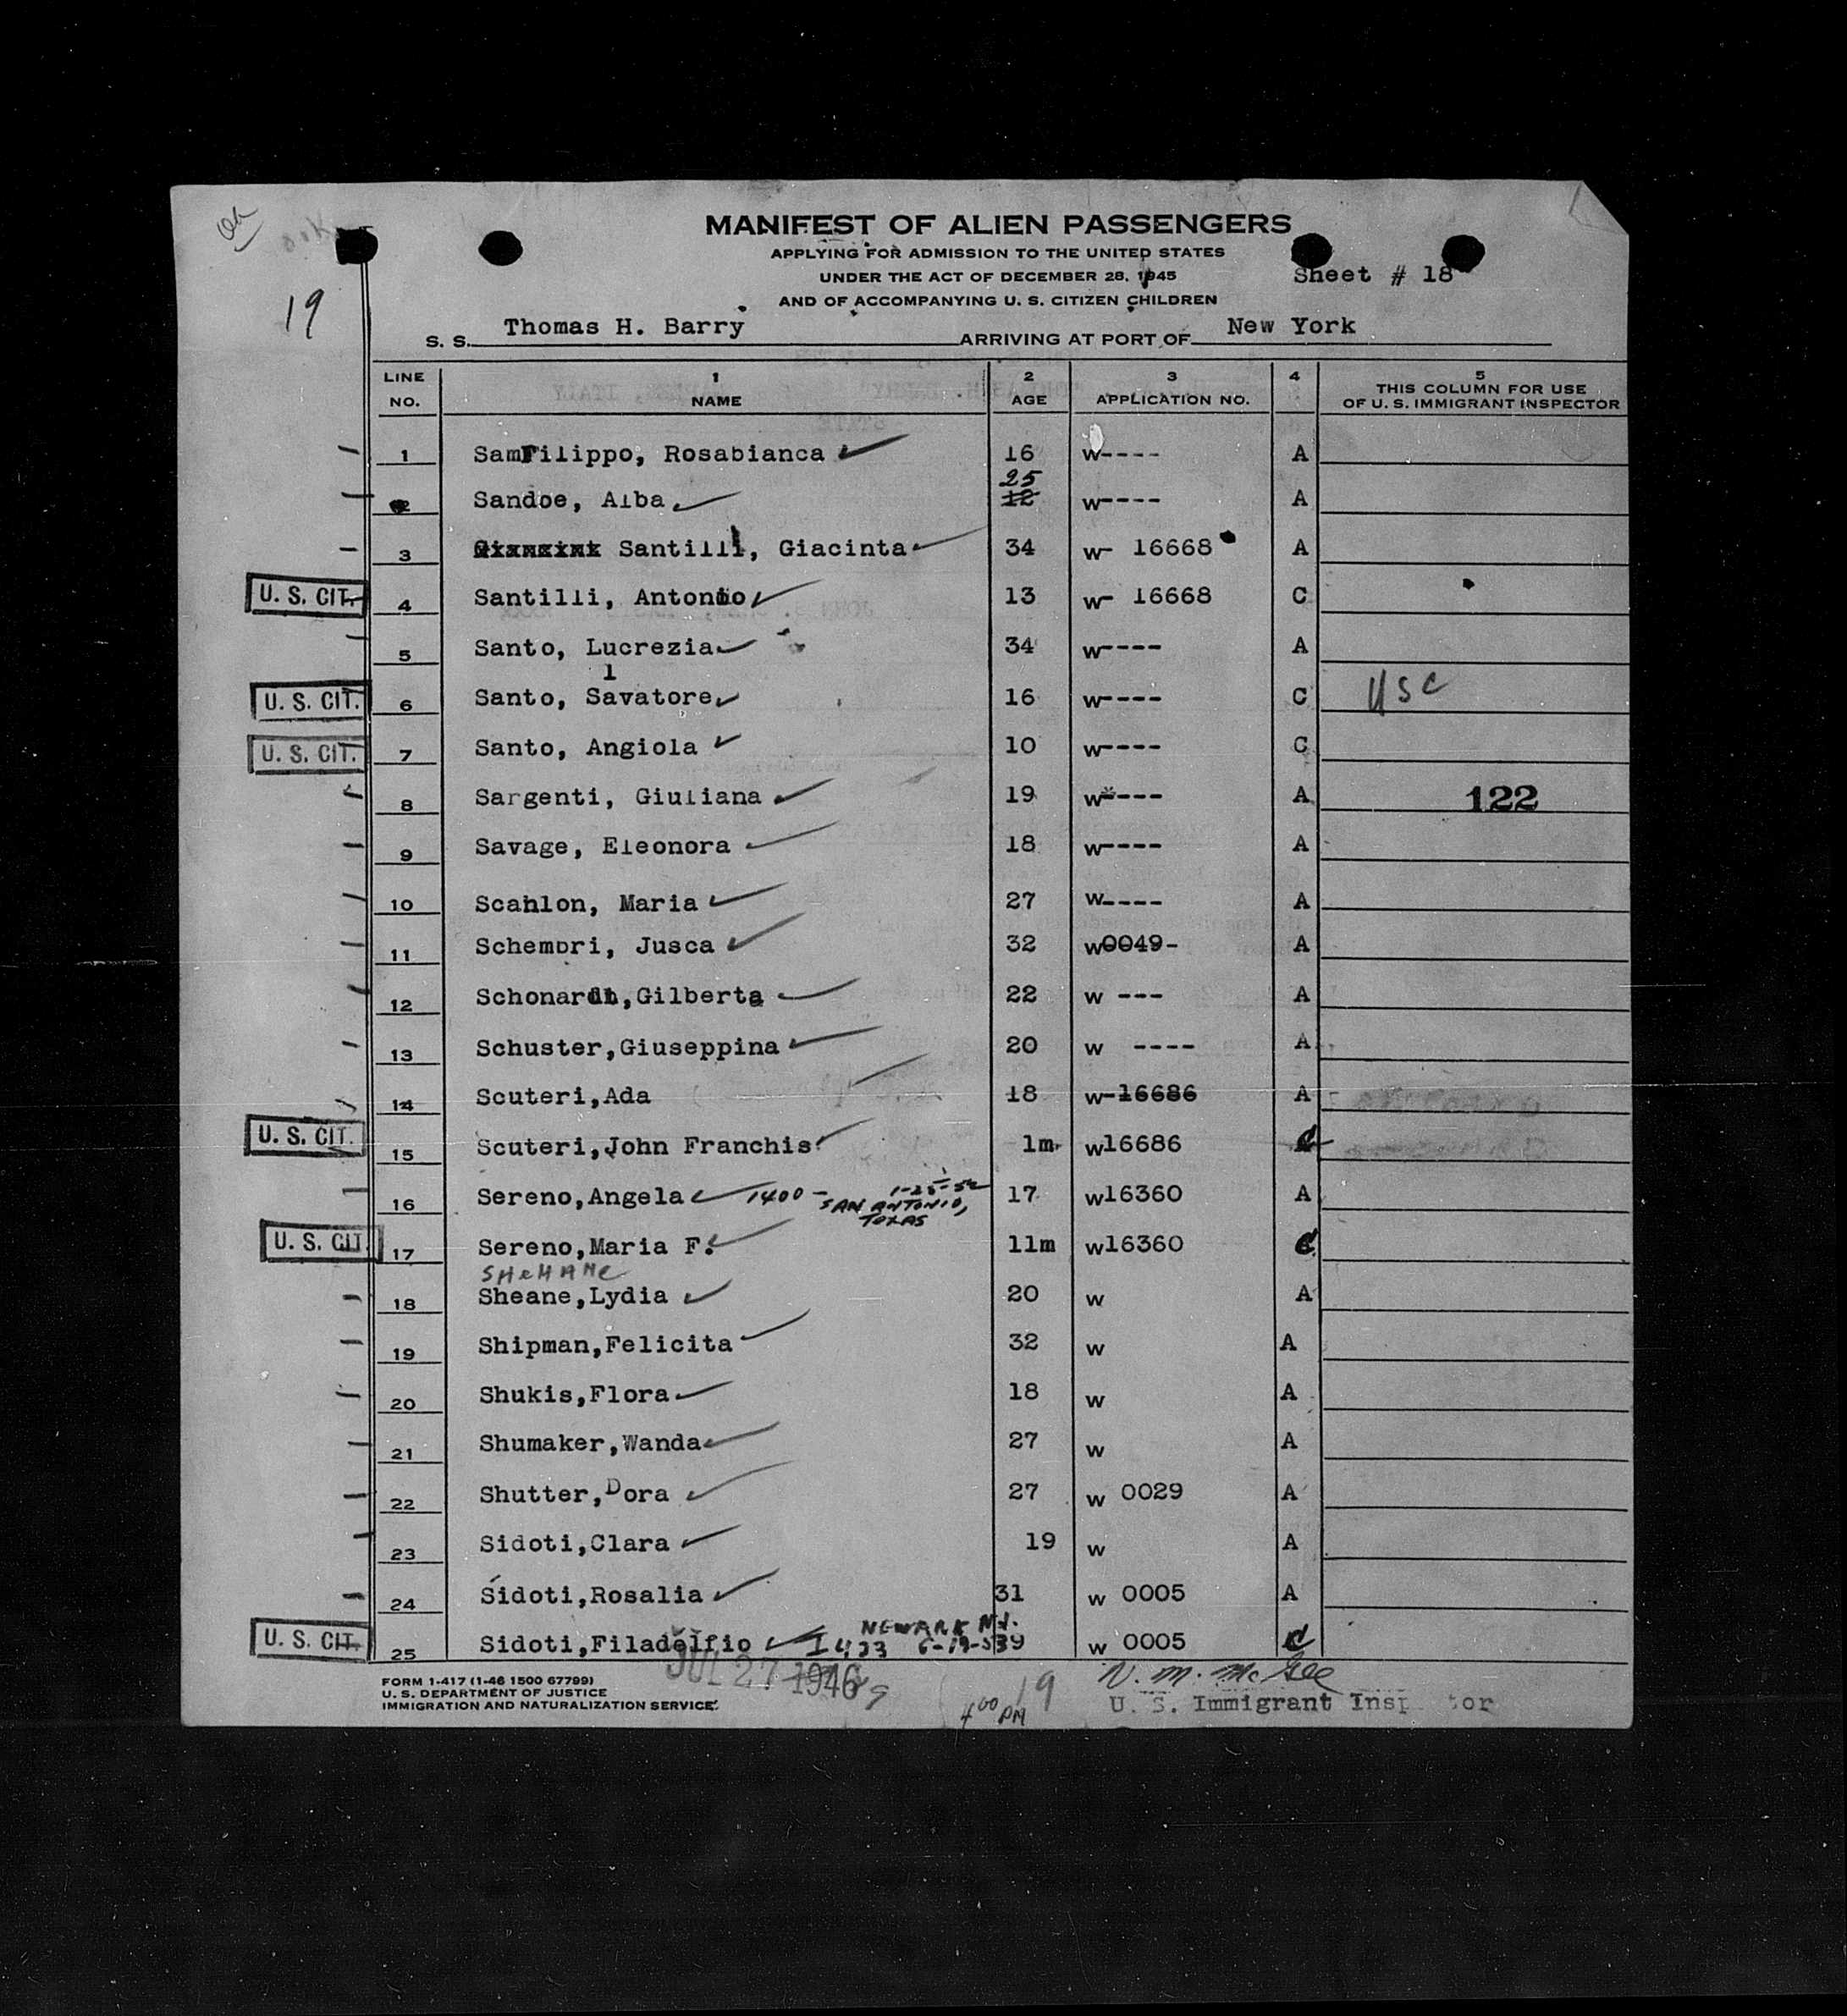 MANIFEST OF ALIEN PASSENGERS
APPLYING FOR ADMISSION TO THE UNITED STATES
UNDER THE ACT OF DECEMBER 28, 1945
Sheet # 18
AND OF ACCOMPANYING U. S. CITIZEN CHILDREN
19
S. S. Thomas H. Barry ARRIVING AT PORT OF New York
LINE NO. 1 NAME 2 AGE 3 APPLICATION NO. 4 5 THIS COLUMN FOR USE OF U. S. IMMIGRANT INSPECTOR
1 SamFilippo, Rosabianca 16 W---- A
25
2 Sandoe, Alba 12 W---- A
3 Santilli, Giacinta 34 W- 16668 A
U. S. CIT. 4 Santilli, Antonio 13 W- 16668 C
5 Santo, Lucrezia 34 W---- A
l
U. S. CIT. 6 Santo, Savatore 16 W---- C USC
U. S. CIT. 7 Santo, Angiola 10 W---- C
8 Sargenti, Giuliana 19 W---- A 122
9 Savage, Eleonora 18 W---- A
10 Scahlon, Maria 27 W---- A
11 Schembri, Jusca 32 W0049- A
12 Gilberta 22 W --- A
13 Schuster,Giuseppina 20 W ---- A
14 Scuteri,Ada 18 W-16686 A
U. S. CIT. 15 Scuteri,John Franchis 1m W16686 C
16 Sereno,Angela 1400 - 1-25-52 SAN ANTONIO, TEXAS 17 W16360 A
U. S. CIT. 17 Sereno,Maria F. 11m W16360 C
SHEHANE
18 Sheane,Lydia 20 W A
19 Shipman,Felicita 32 W A
20 Shukis,Flora 18 W A
21 Shumaker,Wanda 27 W A
22 Shutter,Dora 27 W 0029 A
23 Sidoti,Clara 19 W A
24 Sidoti,Rosalia 31 W 0005 A
NEWARK N.J.
U. S. CIT. 25 Sidoti,Filadelfio 9 W 0005 C
JUL 27 1946
FORM I-417 (1-46 1500 67799)
U. S. DEPARTMENT OF JUSTICE
IMMIGRATION AND NATURALIZATION SERVICE
4 00 PM
19
N. M. McGee
U. S. Immigrant Insp tor